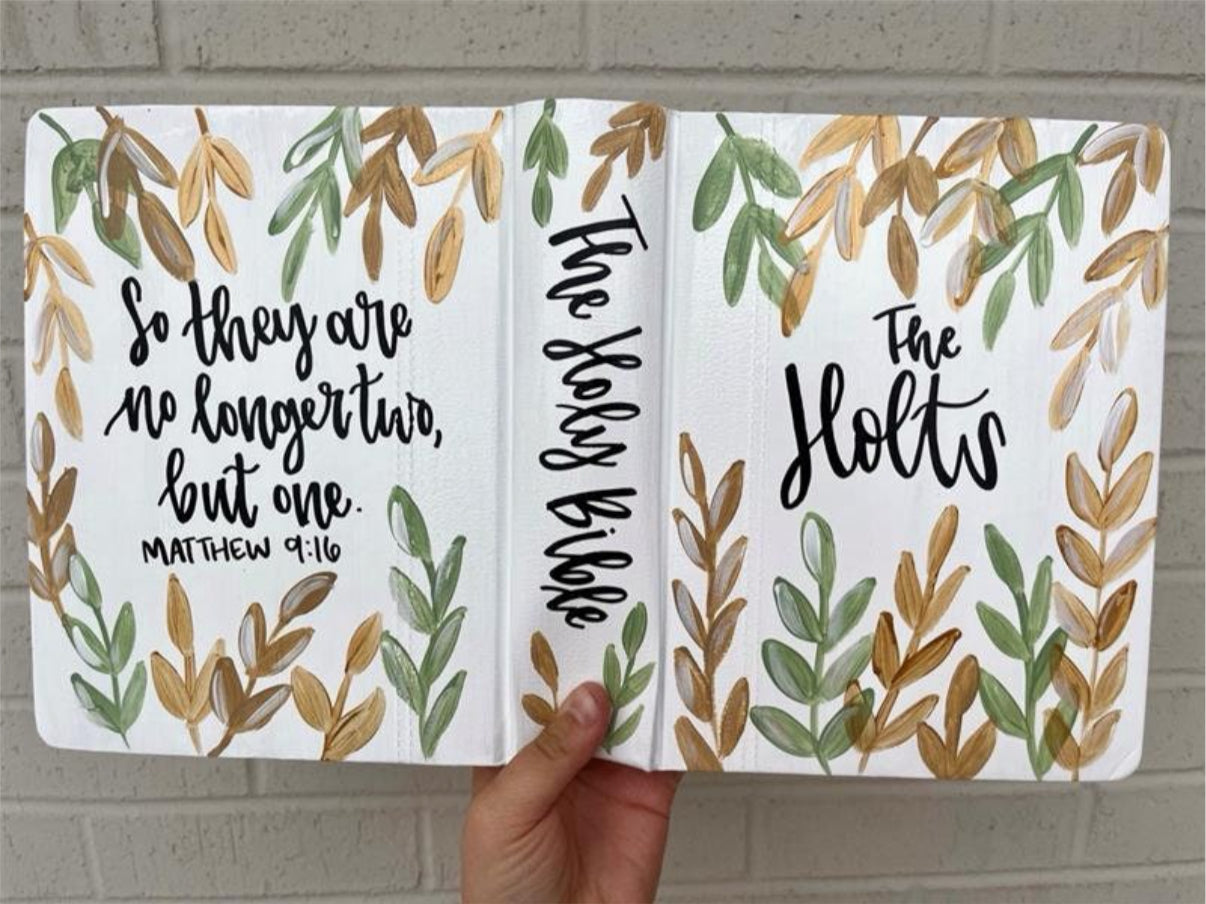 So they are
no longer two,
but one.
MATTHEW 9:16
The Holy Bible
The
Holts